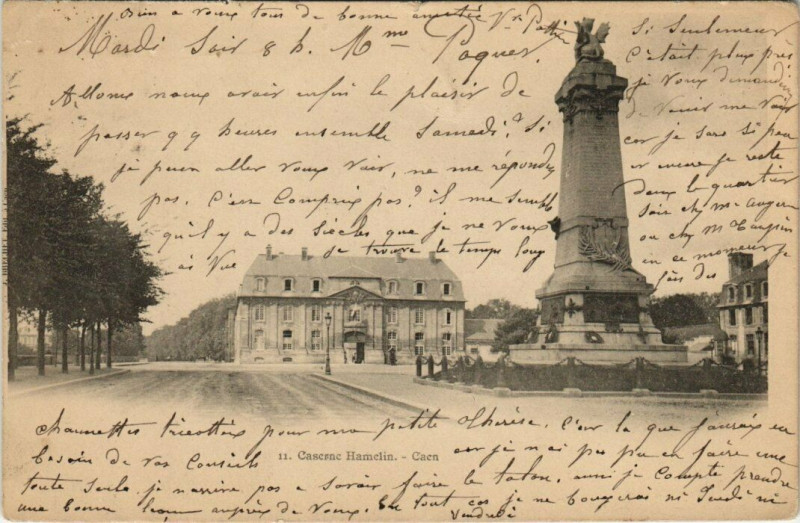 Bien a vous tous de bonne amitié Vve Pottier
Mardi Soir 8 h. Mme Paquer,
Allons nous avoir enfin le plaisir de
passer qq heures ensemble Samedi? Si
je puis aller vous voir, ne me répondez
pas. C'est Compris pas? il me semble
qu'il y a des Siècles que je ne vous
ai vue je trouve le temps long
Si Seulement
c'était plus près
je vous demanderais
de venir me voir
car je sors si peu
en ce moment je reste
dans le quartier
soit chez Mme
ou chez Mme
en ce moment je
fais des
chaussettes tricotées pour ma petite Thérèse. C'est là que j'aurais eu
besoin de vos Conseils car je n'ai pas pu en faire une
toute seule je n'arrive pas a savoir faire le talon, aussi je Compte prendre
une bonne leçon auprès de vous. En tout cas je ne bougerai ni Jeudi ni
Vendredi
11. Caserne Hamelin. - Caen